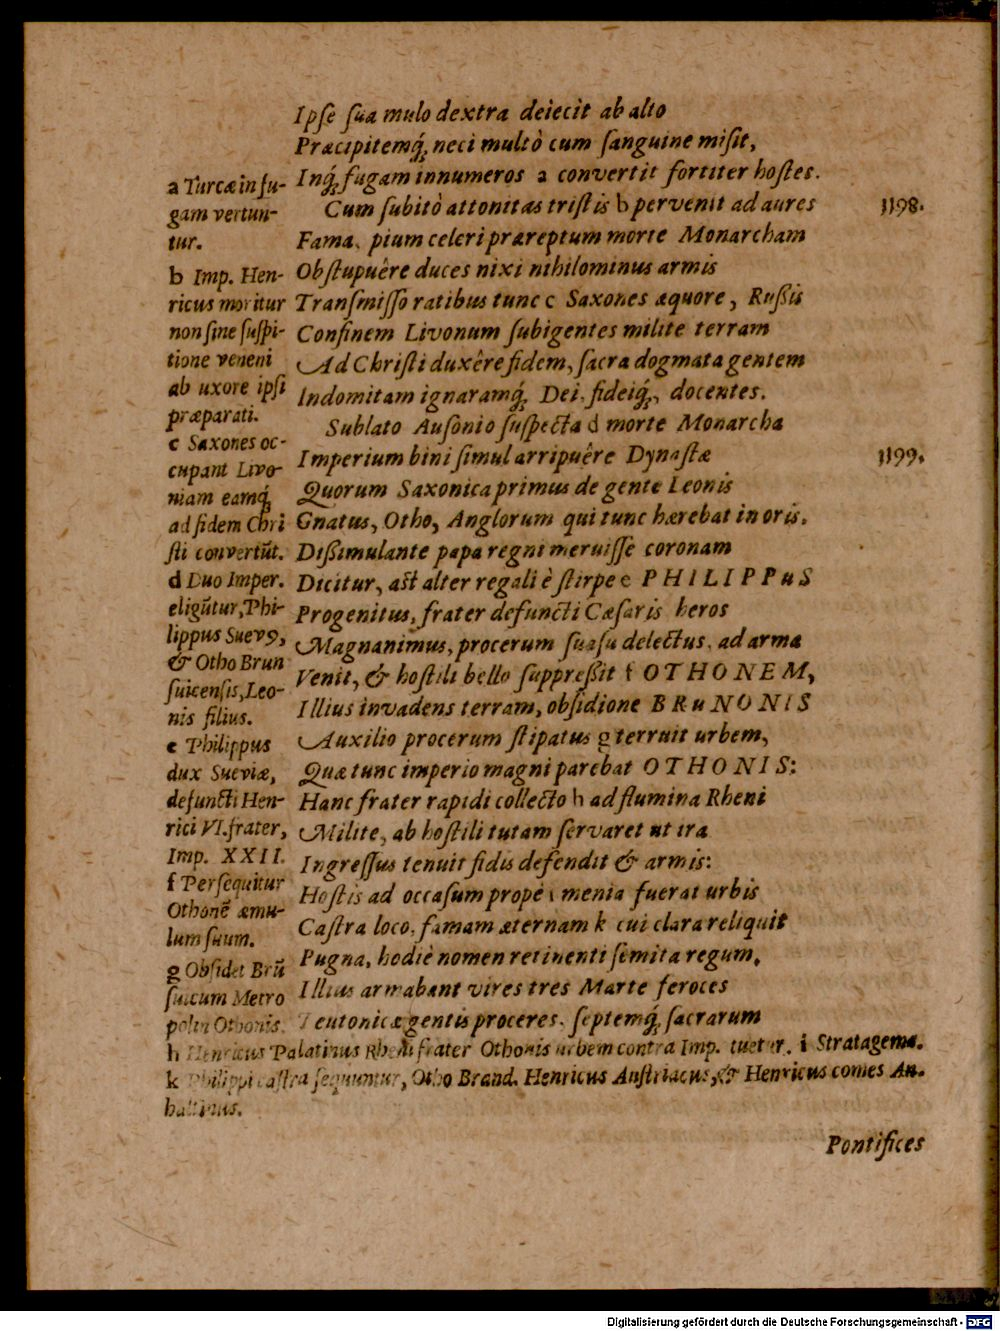 Ipſe ſua mulo dextra deiecit ab alto
Præcipitemq́, neci multò cum ſanguine miſit,
Inq́, fugam innumeros a convertit fortiter hoſtes.
Cum ſubitò attonitas triſtis b pervenit ad aures
1198.
Fama, pium celeri præreptum morte Monarcham
Obſtupuêre duces nixi nihilominus armis
Tranſmiſſo ratibus tunc c Saxones æquore, Rußis
Confinem Livonum ſubigentes milite terram
Ad Chriſti duxêre fidem, ſacra dogmata gentem
Indomitam ignaramq́, Dei, fideiq́, docentes.
Sublato Auſonio ſuſpecta d morte Monarcha
Imperium bini ſimul arripuêre Dynaſtæ
1199.
Quorum Saxonica primus de gente Leonis
Gnatus, Otho, Anglorum qui tunc hærebat in oris.
Dißimulante papa regni meruiſſe coronam
Dicitur, aſt alter regali è ſtirpe e PHILIPPuS
Progenitus, frater defuncti Cæſaris heros
Magnanimus, procerum ſuaſu delectus, ad arma
Venit, & hoſtili bello ſuppreßit f OTHONEM,
Illius invadens terram, obſidione BRuNONIS
Auxilio procerum ſtipatus g terruit urbem,
Quæ tunc imperio magni parebat OTHONIS:
Hanc frater rapidi collecto h ad flumina Rheni
Milite, ab hoſtili tutam ſervaret ut ira
Ingreſſus tenuit fidis defendit & armis:
Hoſtis ad occaſum propè i menia fuerat urbis
Caſtra loco, famam æternam k cui clara reliquit
Pugna, hodiè nomen retinenti ſemita regum,
Illius armabant vires tres Marte feroces
Teutonicæ gentis proceres, ſeptemq́, ſacrarum
a Turcæ in fu-
gam vertun-
tur.
b Imp. Hen-
ricus moritur
non ſine ſuſpi-
tione veneni
ab uxore ipſi
præparati.
c Saxones oc-
cupant Livo-
niam eamq́,
ad fidem Chri
ſti convertūt.
d Duo Imper.
eligūtur, Phi-
lippus Suevꝰ,
& Otho Brun
ſuicenſis, Leo-
nis filius.
e Philippus
dux Sueviæ,
defuncti Hen-
rici VI. frater,
Imp. XXII.
f Perſequitur
Othonē æmu-
lum ſuum.
g Obſidet Brū
ſuicum Metro
polin Othonis.
h Henricus Palatinus Rheni frater Othonis urbem contra Imp. tuetur. i Stratagema.
k Philippi caſtra ſequuntur, Otho Brand. Henricus Auſtriacus, & Henricus comes An-
haltinus.
Pontifices
Digitalisierung gefördert durch die Deutsche Forschungsgemeinschaft - DFG